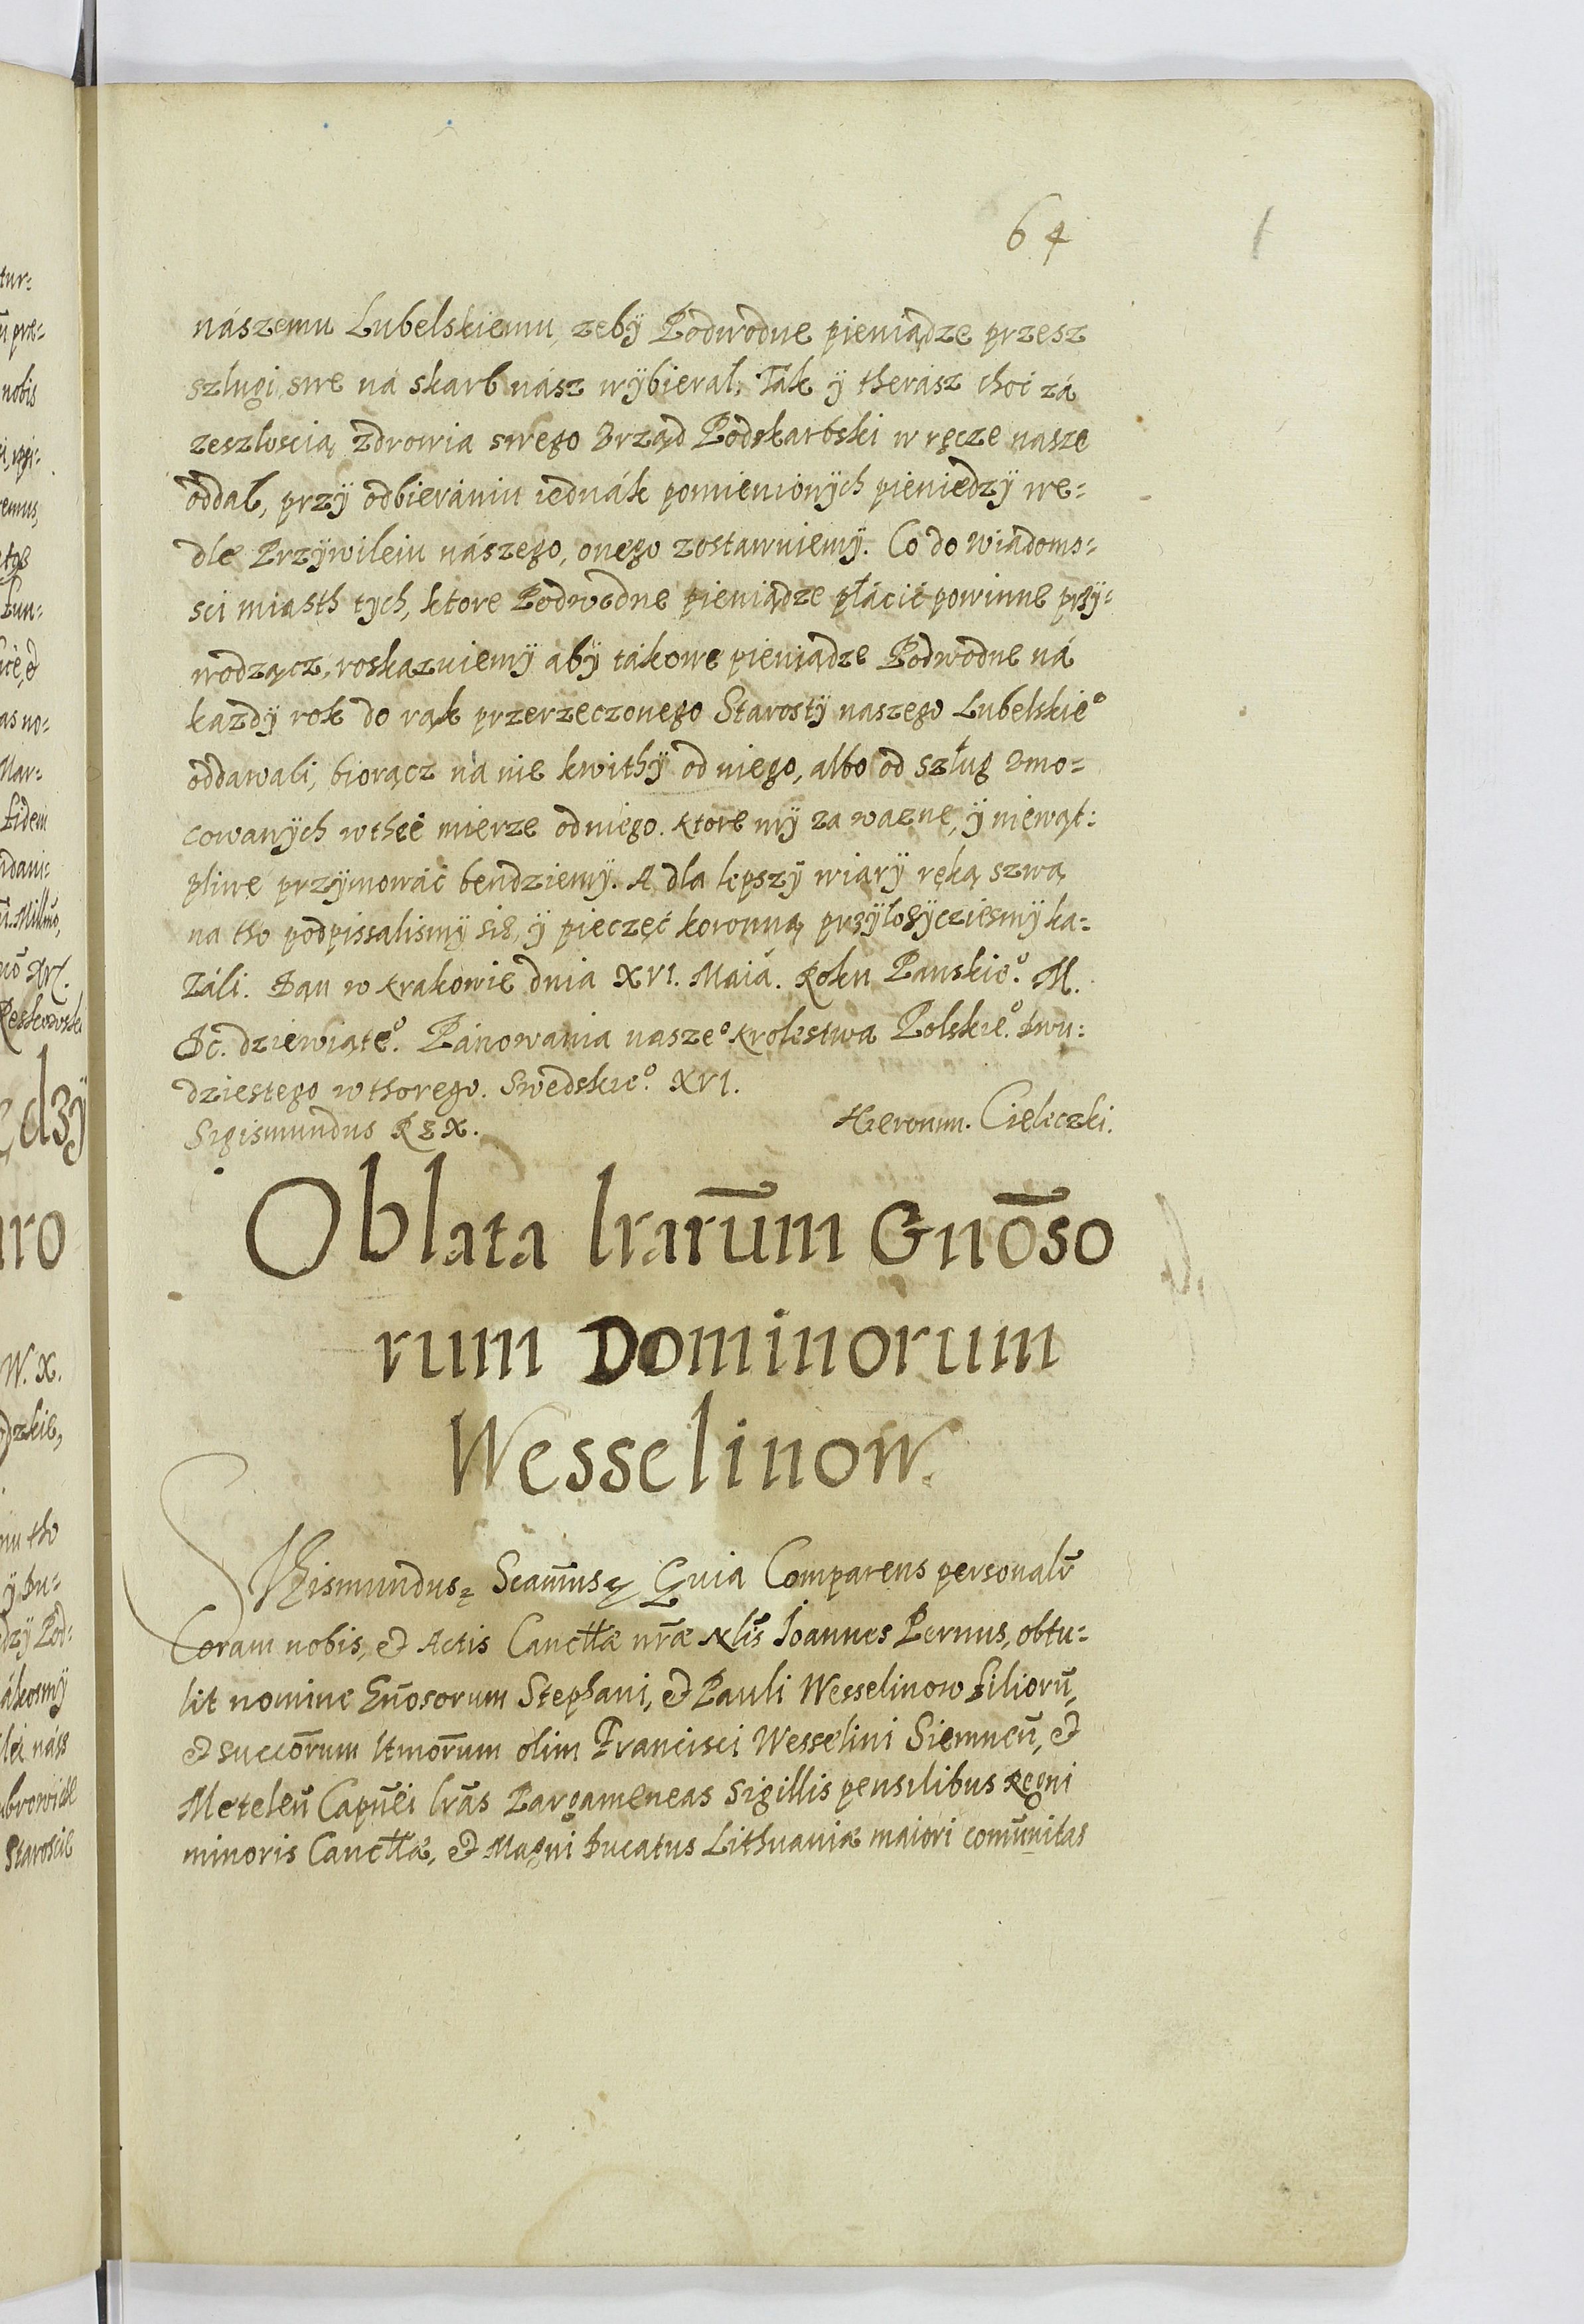 64
nászemu Lubelskiemu, zebÿ Podwodne pieniądze przesz
szlugi swe ná skarb nász wÿbieral. Tak ÿ therász choć zá
zeszłoscią zdrowia swego Vrząd Podskarbski w ręcze nasze
oddal, przÿ odbierániu iednák pomienionÿch pieniedzÿ we-
dle Przÿwileiu nászego, onego zostawuiemÿ. Co do wiádomo-
sci miasth tÿch, ktore Podwodne pieniądze płácić powinne przÿ-
wodząc, roskazuiemÿ ábÿ tákowe pieniądze Podwodne ná
kazdÿ rok do rąk przerzeczonego Starostÿ naszego Lubelskieº
oddawali, biorącz ná nie kwithÿ od niego, albo od szług vmo-
cowanÿch w theÿ mierze od niego. ktore mÿ za wazne, ÿ niewąt-
pliwe przÿmowáć bendziemÿ. A dla lepszÿ wiárÿ ręką szwą
na tho podpissalismÿ sie, ÿ pieczęć koronną przÿlozÿcziesmÿ ka-
záli. Dan w Krakowie dnia XVI. Maiá. Roku Panskieº. M.
Dc. dziewiąteº. Pánowania naszeº Krolestwa Polskieº. dwu-
dziestego wthorego. Swedskieº. XVI.
Sigismundus REX. Hieronim. Cieleczki.
Oblata lrarūm Gnōso
rum Dominorum
Wesselinow.
Sigismundus etc. Quia Comparens personalr̄
Coram nobis, et Actis Cancllæ nr̄æ Nlis Joannes Pernus, obtu-
lit nomine Gn̄osorum Stephani, et Pauli Wesselinow filiorū,
et succōrum ltmōrum olim Francisci Wesselini Siemneñ, et
Meteleñ Capn̄ei lrās Pargameneas Sigillis pensilibus Regni
minoris Cancllæ, et Magni Ducatus Lithuaniæ maiori com̄unitas